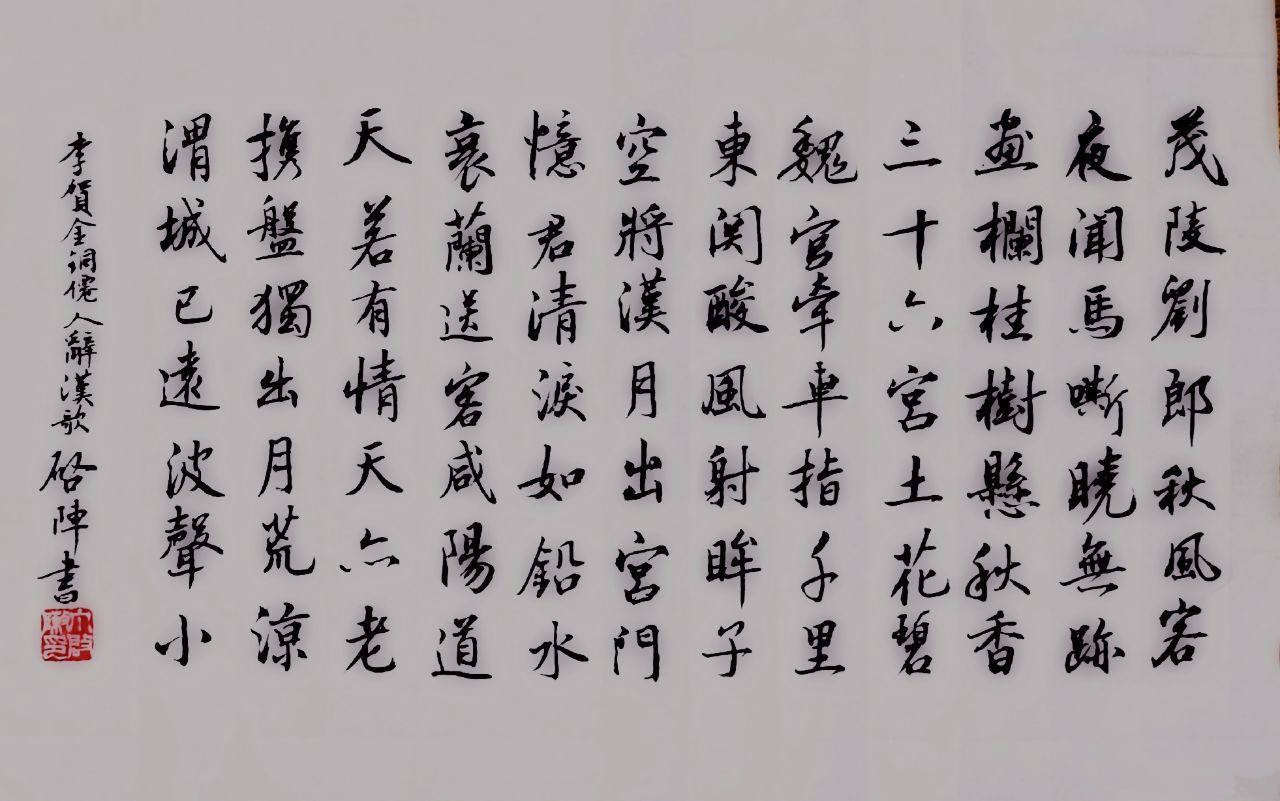 茂陵劉郎秋風客
夜聞馬嘶曉無跡
畫欄桂樹懸秋香
三十六宮土花碧
魏官牽車指千里
東関酸風射眸子
空將漢月出宮門
憶君清淚如鉛水
衰蘭送客咸陽道
天若有情天亦老
携盤獨出月荒涼
渭城已遠波聲小
李賀金銅僊人辭漢歌 啓陣書